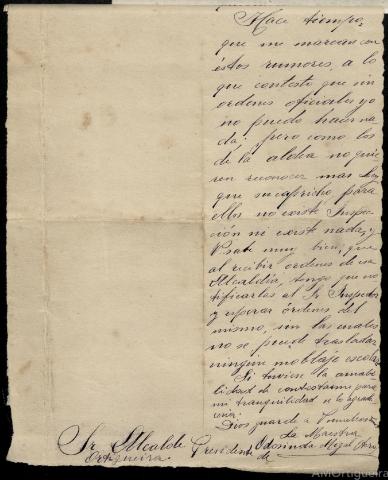 Hace tiempo,
que me marean con
éstos rumores, a lo
que contesto que sin
órdenes oficiales yo
no puedo hacer na
da; pero como los
de la aldea no quie
ren reconocer mas ley
que su capricho, para
ellos no existe Inspec
ción ni existe nada, y
V. sabe muy bien, que
al recibir ordenes de esa
Alcaldia, tengo que no
tificarlas al Sr. Inspector
y esperar órdenes del
mismo, sin las cuales
no se puede trasladar
ningun moblaje escolar.
Si tuviese la amabi
lidad de contestarme para
mi tranquilidad se lo agrade
ceria.
Dios guarde a V. muchos
La Maestra
Odosinda
Sr. Alcalde Presidente
de
Ortigueira.
AMOrtigueira